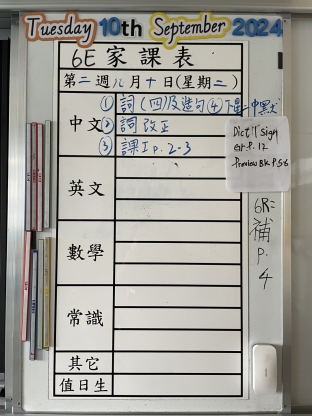 Tuesday 10th September 2024
6E 家課表
第二週九月十日(星期二)
中文
① 詞(四)及造句(4)
② 詞改正
③ 課I p.2-3
英文
數學
常識
其它
值日生
sign
P.12
Preview Bk P.5-6
補
p.
4